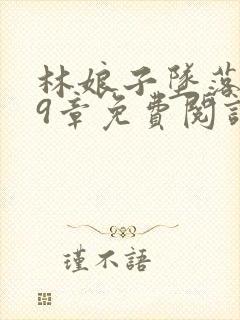 林娘子墜落
9章免費閱讀
瑾不語